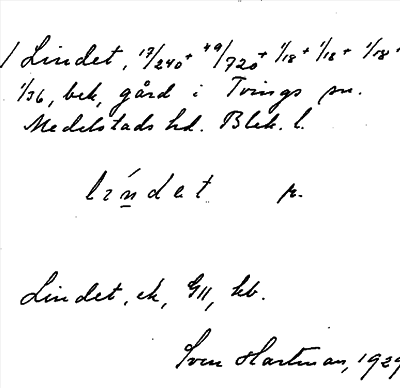 1/ Lindet, 17/240 + 49/720 + 1/18 + 1/18 + 1/78 +
1/36, bek, gård i Tvings sn.
Medelstads hd. Blek. l.
lìndet p.
Lindet, ek, GII, kb.
Sven Hartman, 1929